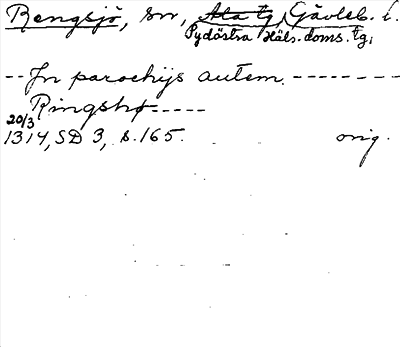 Rengsjö, sn, Ala tg, Gävleb. l.
Sydöstra Häls. doms. tg.
-- Jn parochijs autem. --------
Ringshø-----
20/3
1314, SD 3, s. 165. orig.